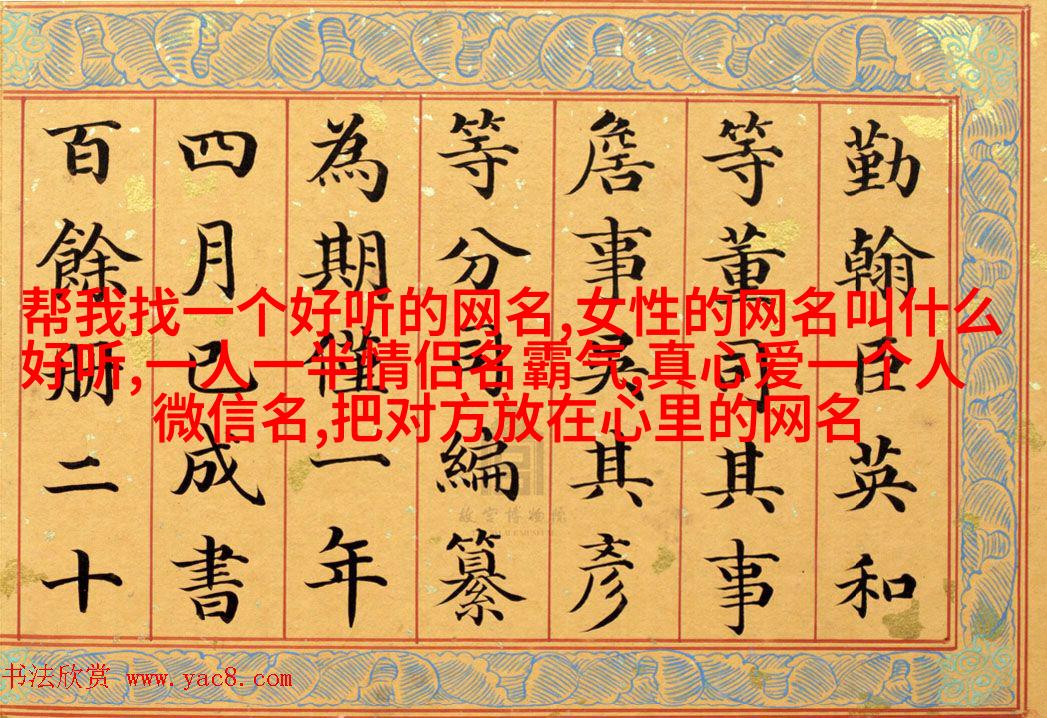 勤翰臣英和
等董司其事
詹事吳其彥
等分司編纂
為期僅一年
四月已成書
百餘冊二十
帮我找一个好听的网名,女性的网名叫什么
好听,一人一半情侣名霸气,真心爱一个人
微信名,把对方放在心里的网名
故宫博物院
书法欣赏 www.yac8.com